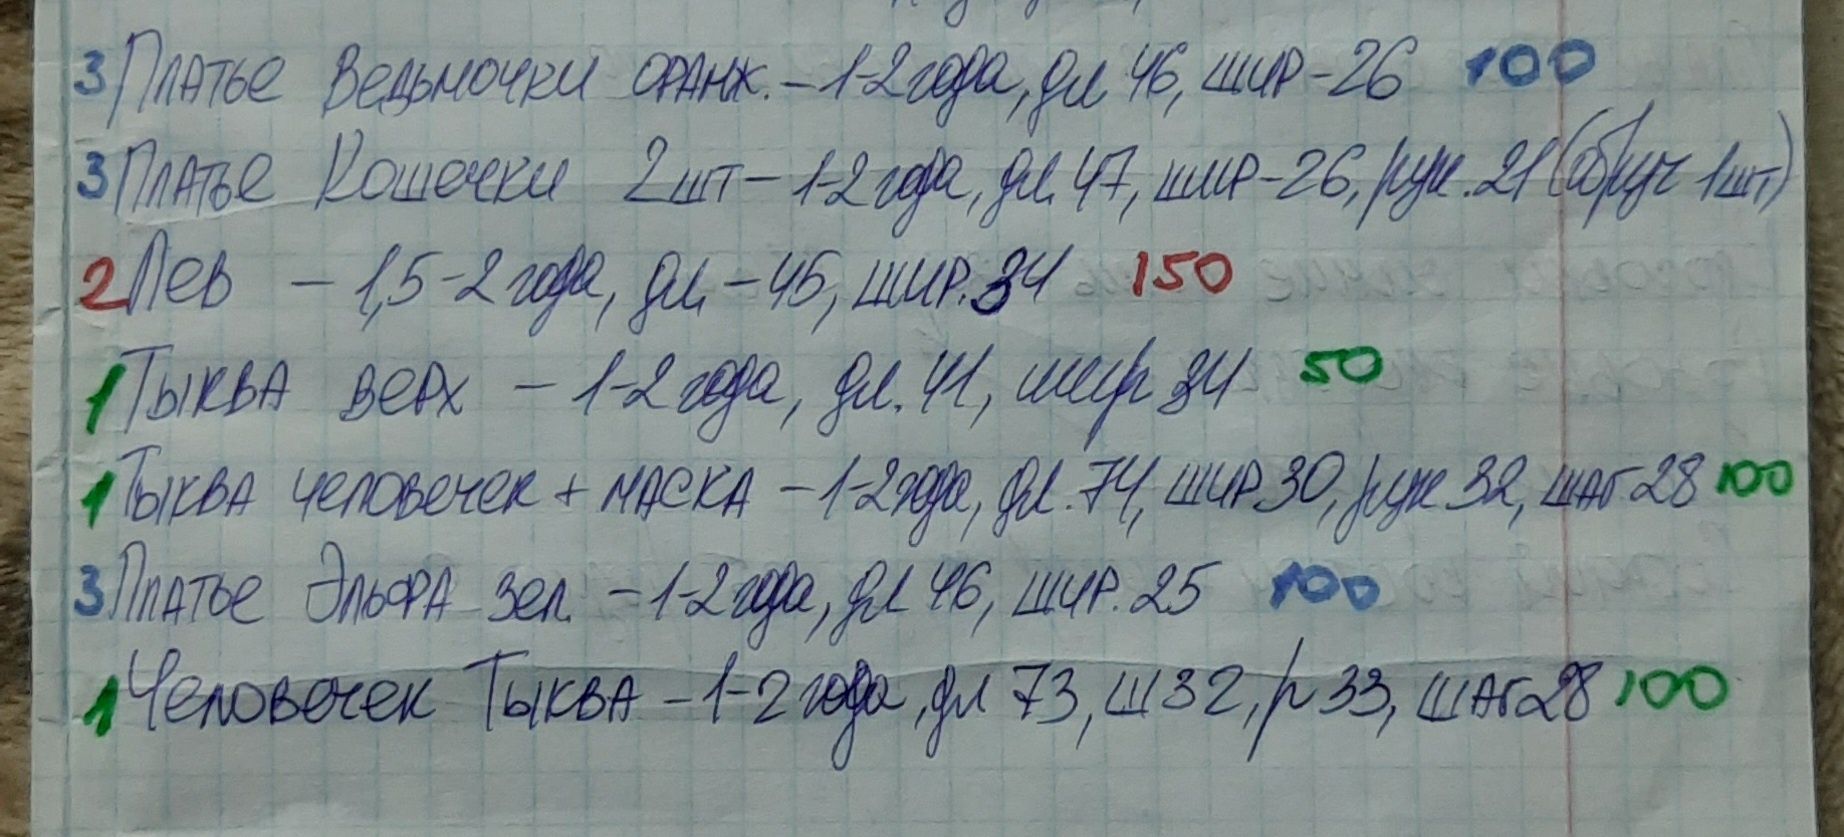 3 Платье Ведьмочки оранж. – 1-2 года, дл 46, шир-26 100
3 Платье Кошечки 2шт – 1-2 года, дл. 47, шир-26, рук. 21 (обруч 1шт)
2 Лев – 1,5-2 года, дл. – 45, шир. 34 150
1 Тыква верх – 1-2 года, дл. 41, шир 34 50
1 Тыква человечек + маска – 1-2 года, дл. 74, шир 30, рук 32, шаг 28 100
3 Платье Эльфа зел. – 1-2 года, дл 46, шир. 25 100
1 Человечек Тыква – 1-2 года, дл 73, ш 32, р 33, шаг 28 100